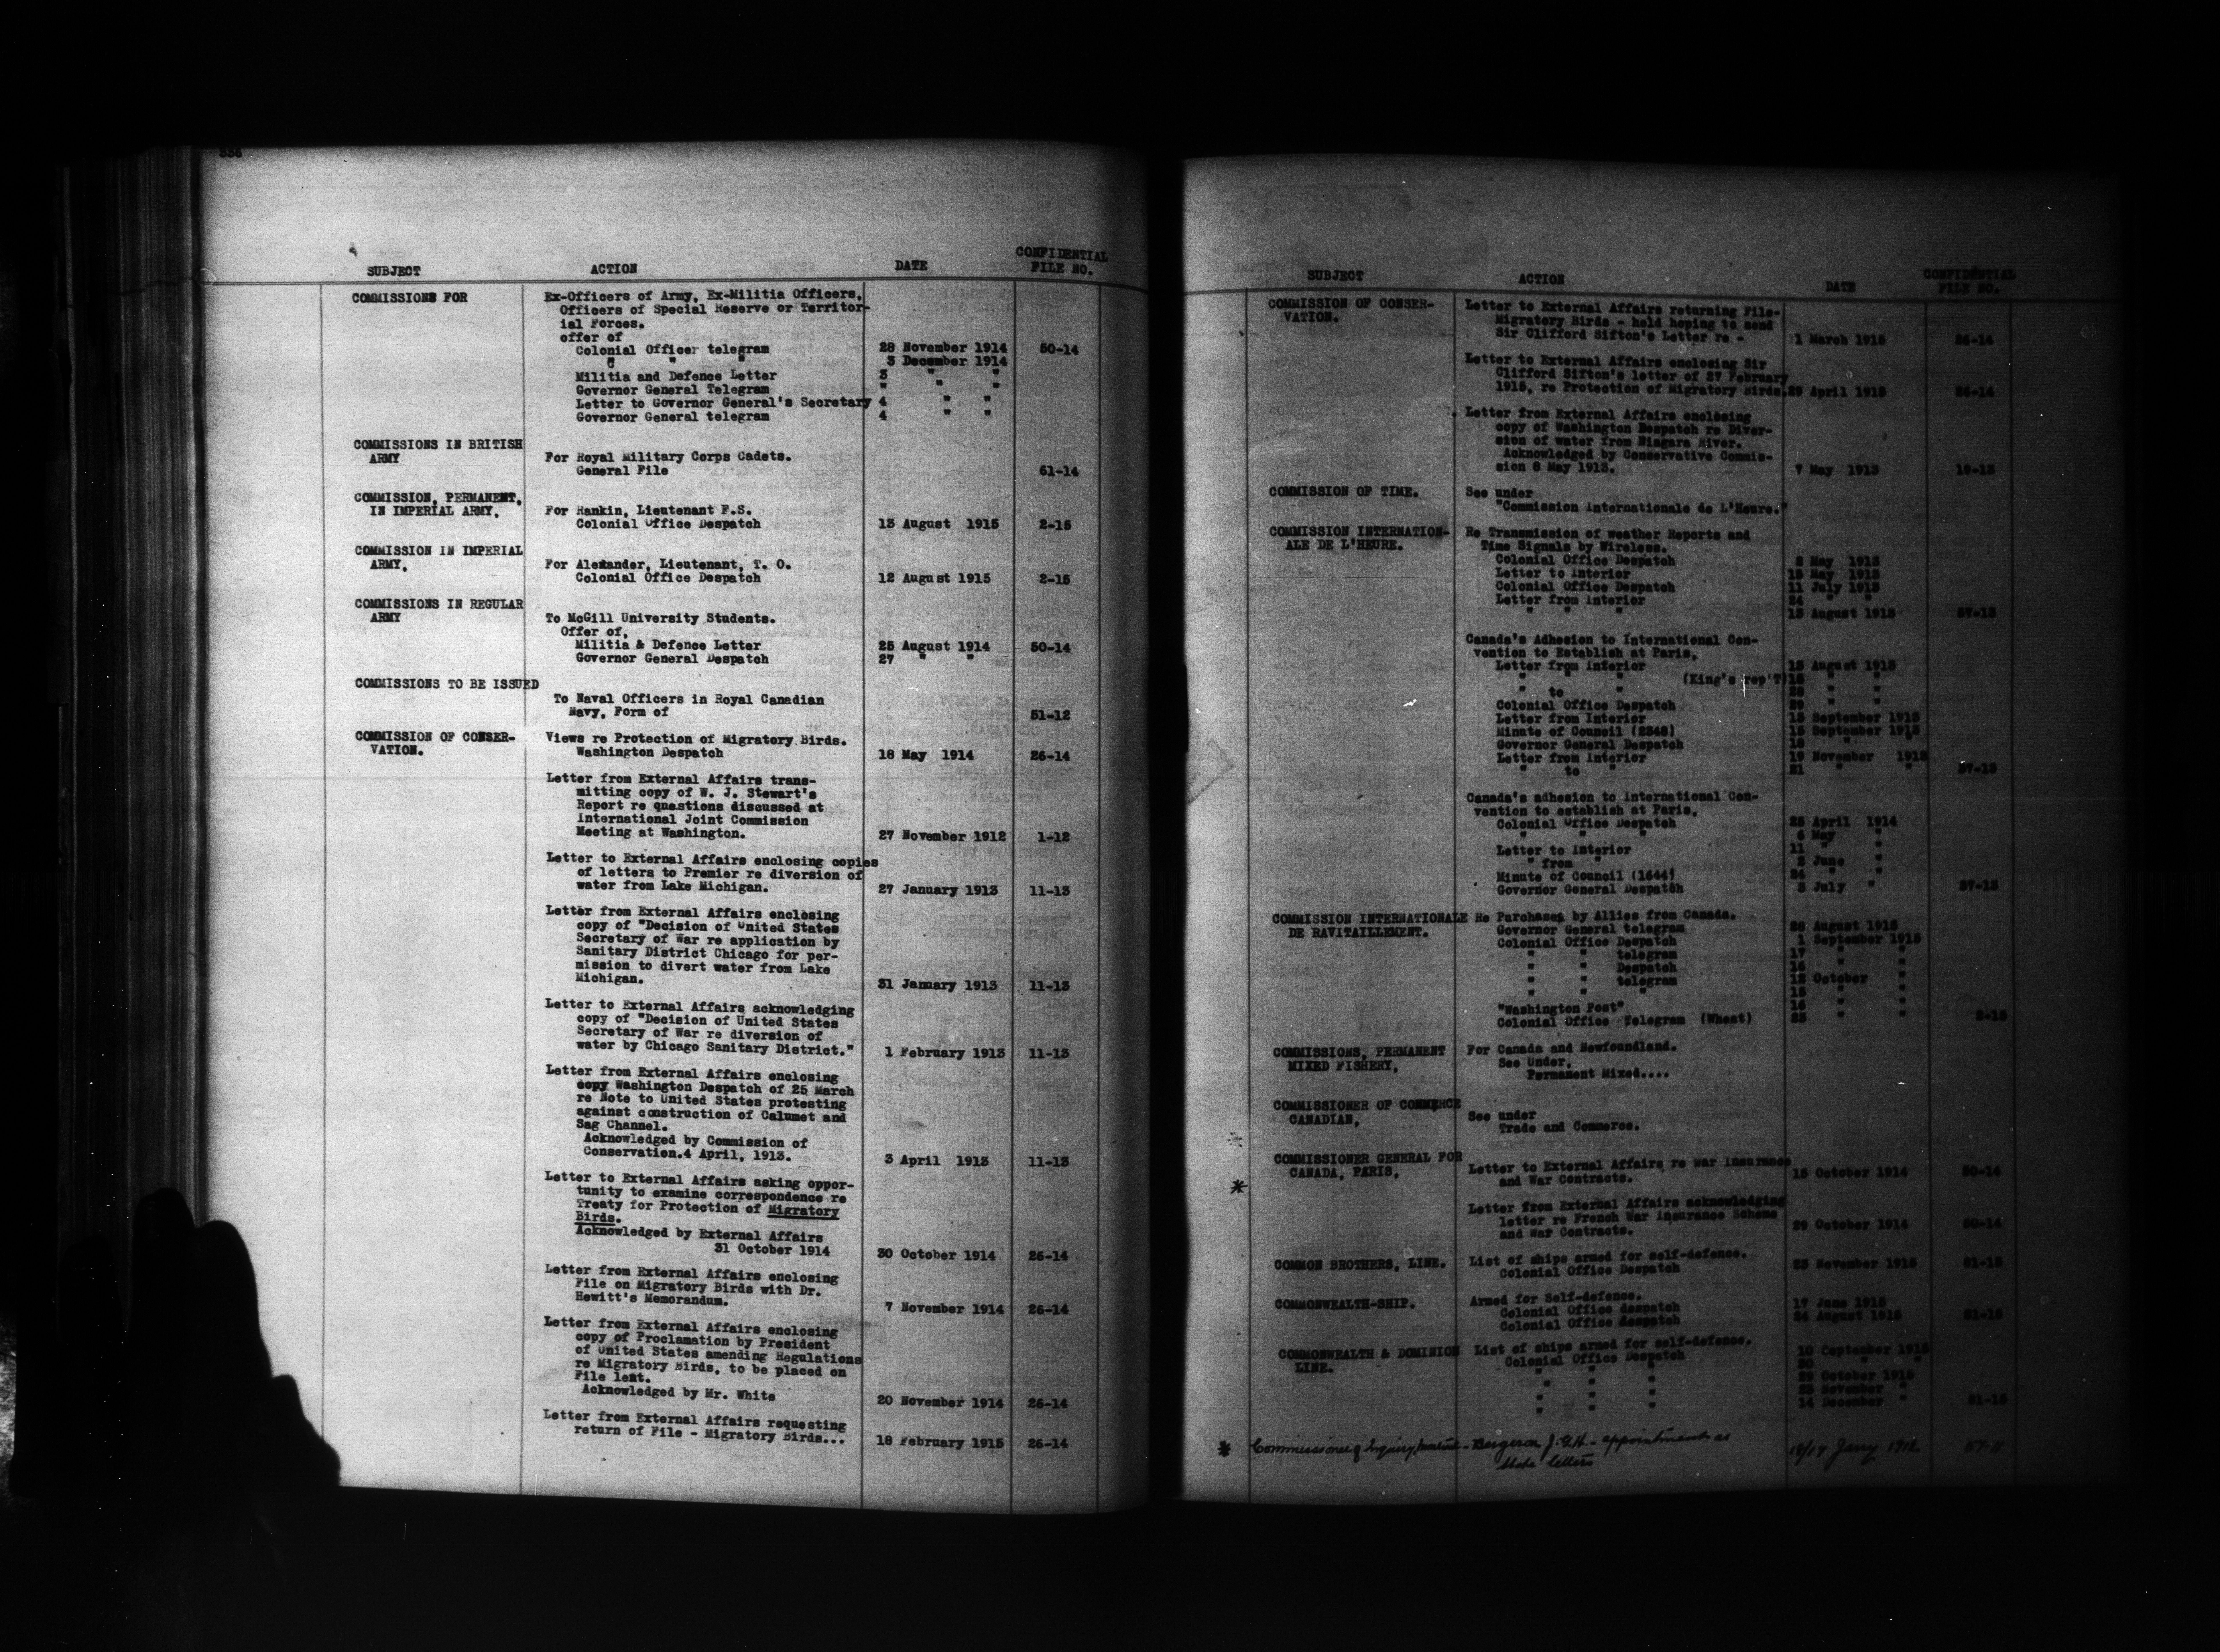 SUBJECT ACTION DATE CONFIDENTIAL FILE NO.
COMMISSIONS FOR Ex-Officers of Army, Ex-Militia Officers,
Officers of Special Reserve or Territor-
ial Forces.
offer of
Colonial Officer telegram 28 November 1914 50-14
" " " 3 December 1914
Militia and Defence Letter 3 " "
Governor General Telegram " " "
Letter to Governor General's Secretary 4 " "
Governor General telegram 4 " "
COMMISSIONS IN BRITISH
ARMY For Royal Military Corps Cadets.
General File 61-14
COMMISSION, PERMANENT,
IN IMPERIAL ARMY, For Rankin, Lieutenant F.S.
Colonial Office Despatch 13 August 1915 2-15
COMMISSION IN IMPERIAL
ARMY, For Alexander, Lieutenant, T. O.
Colonial Office Despatch 12 August 1915 2-15
COMMISSIONS IN REGULAR
ARMY To McGill University Students.
Offer of,
Militia & Defence Letter 25 August 1914 50-14
Governor General Despatch 27 " "
COMMISSIONS TO BE ISSUED
To Naval Officers in Royal Canadian
Navy, Form of 51-12
COMMISSION OF CONSER- Views re Protection of Migratory Birds.
VATION. Washington Despatch 18 May 1914 26-14
Letter from External Affairs trans-
mitting copy of W. J. Stewart's
Report re questions discussed at
International Joint Commission
Meeting at Washington. 27 November 1912 1-12
Letter to External Affairs enclosing copies
of letters to Premier re diversion of
water from Lake Michigan. 27 January 1913 11-13
Letter from External Affairs enclosing
copy of "Decision of United States
Secretary of War re application by
Sanitary District Chicago for per-
mission to divert water from Lake
Michigan. 31 January 1913 11-13
Letter to External Affairs acknowledging
copy of "Decision of United States
Secretary of War re diversion of
water by Chicago Sanitary District." 1 February 1913 11-13
Letter from External Affairs enclosing
copy Washington Despatch of 25 March
re Note to United States protesting
against construction of Calumet and
Sag Channel.
Acknowledged by Commission of
Conservation.4 April, 1913. 3 April 1913 11-13
Letter to External Affairs asking oppor-
tunity to examine correspondence re
Treaty for Protection of Migratory
Birds.
Acknowledged by External Affairs
31 October 1914 30 October 1914 26-14
Letter from External Affairs enclosing
File on Migratory Birds with Dr.
Hewitt's Memorandum. 7 November 1914 26-14
Letter from External Affairs enclosing
copy of Proclamation by President
of United States amending Regulations
re Migratory Birds, to be placed on
File lent.
Acknowledged by Mr. White 20 November 1914 26-14
Letter from External Affairs requesting
return of File - Migratory Birds... 18 February 1915 26-14
SUBJECT ACTION DATE CONFIDENTIAL FILE NO.
COMMISSION OF CONSER- Letter to External Affairs returning File-
VATION. Migratory Birds - held hoping to send
Sir Clifford Sifton's Letter re - 1 March 1915 26-14
Letter to External Affairs enclosing Sir
Clifford Sifton's letter of 27 February
1915, re Protection of Migratory Birds. 29 April 1915 26-14
Letter from External Affairs enclosing
copy of Washington Despatch re Diver-
sion of water from Niagara River.
Acknowledged by Conservative Commis-
sion 8 May 1913. 7 May 1913 19-13
COMMISSION OF TIME. See under
"Commission Internationale de L'Heure."
COMMISSION INTERNATION- Re Transmission of weather Reports and
ALE DE L'HEURE. Time Signals by Wireless.
Colonial Office Despatch 2 May 1913
Letter to Interior 15 May 1913
Colonial Office Despatch 11 July 1913
Letter from Interior 24 " "
" " " 13 August 1913 37-13
Canada's Adhesion to International Con-
vention to Establish at Paris,
Letter from Interior 15 August 1913
" " " (King's rep'T) 16 " "
" to " 28 " "
Colonial Office Despatch 29 " "
Letter from Interior 13 September 1913
Minute of Council (2348) 15 September 1913
Governor General Despatch 18 " "
Letter from Interior 19 November 1913
" to " 21 " " 37-13
Canada's adhesion to International Con-
vention to establish at Paris,
Colonial Office Despatch 25 April 1914
" " " 6 May "
Letter to Interior 11 " "
" from " 2 June "
Minute of Council (1644) 24 " "
Governor General Despatch 3 July " 37-13
COMMISSION INTERNATIONALE Re Purchases by Allies from Canada.
DE RAVITAILLEMENT. Governor General telegram 28 August 1915
Colonial Office Despatch 1 September 1915
" " telegram 17 " "
" " Despatch 16 " "
" " telegram 12 October "
" " " 15 " "
"Washington Post" 16 " "
Colonial Office Telegram (Wheat) 23 " " 2-15
COMMISSIONS, PERMANENT For Canada and Newfoundland.
MIXED FISHERY, See Under,
Permanent Mixed....
COMMISSIONER OF COMMERCE
CANADIAN, See under
Trade and Commerce.
COMMISSIONER GENERAL FOR
CANADA, PARIS, Letter to External Affairs re war Insurance
and War Contracts. 15 October 1914 50-14
*
Letter from External Affairs acknowledging
letter re French War Insurance Scheme
and War Contracts. 29 October 1914 50-14
COMMON BROTHERS, LINE. List of ships armed for self-defence.
Colonial Office Despatch 23 November 1915 51-15
COMMONWEALTH-SHIP. Armed for Self-defence.
Colonial Office despatch 17 June 1915
Colonial Office despatch 24 August 1915 51-15
COMMONWEALTH & DOMINION List of ships armed for self-defence.
LINE. Colonial Office Despatch 10 September 1915
" " " 20 " "
" " " 29 October 1915
" " " 23 November "
" " " 14 December " 51-15
* Commissioner of Inquiry - Bergeron J.G.H. - appointment as
State letters 18/19 Jany 1912